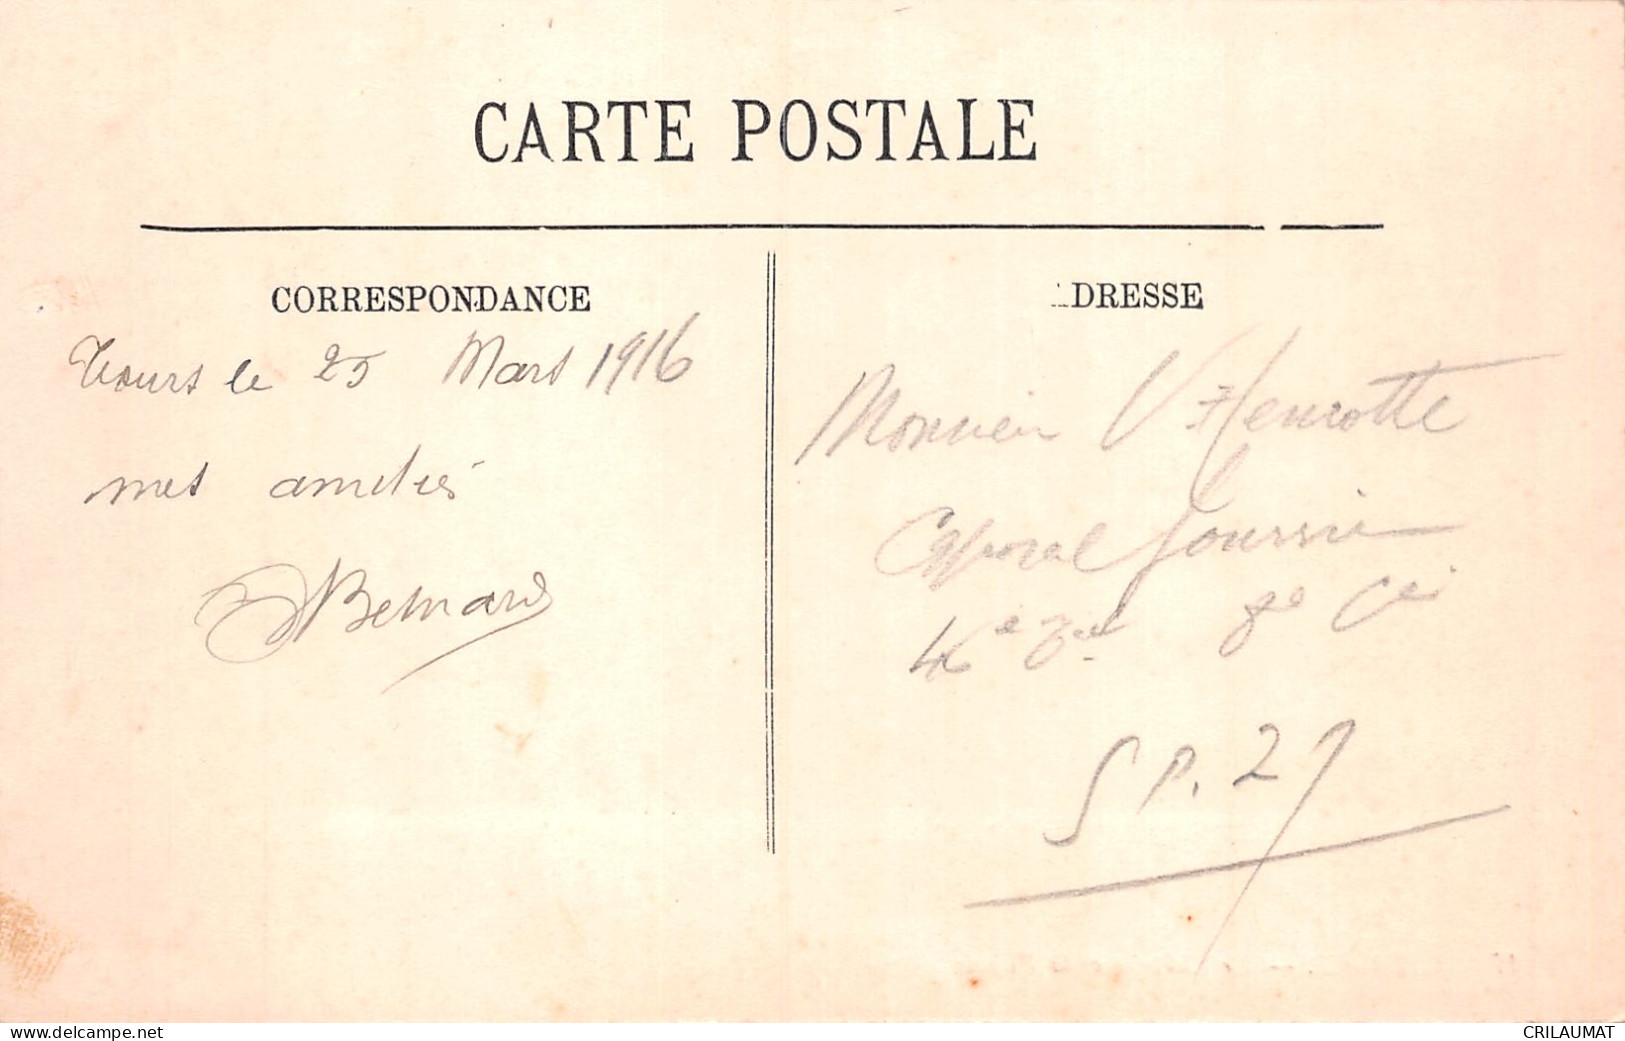 CARTE POSTALE
CORRESPONDANCE
Tours le 25 Mars 1916
mes amitiés
Bernard
DRESSE
Monsieur V Henrotte
Caporal fourrier
46e 8e Cie
S P. 27
delcampe.net
CRILAUMAT